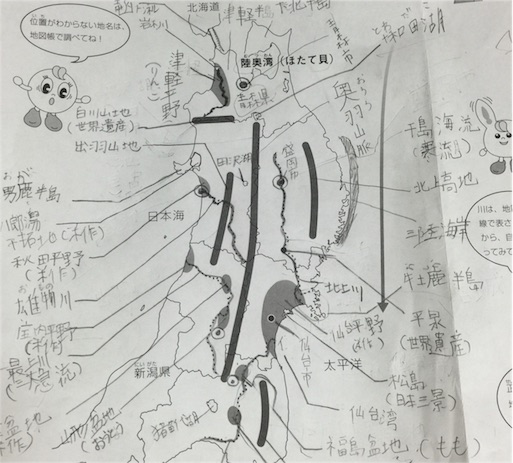 北海道
津軽半島
下北半島
位置がわからない地名は、
地図帳で調べてね!
津軽平野
(りんご)
陸奥湾(ほたて貝)
青森市
青森県
十和田湖
白神山地
(世界遺産)
出羽山地
奥羽山脈
盛岡市
千島海流
(寒流)
北上高地
三陸海岸
男鹿半島
八郎潟
日本海
秋田平野
(稲作)
雄物川
庄内平野
最上川
(三急流)
新潟県
山形盆地
(おうとう)
猪苗代湖
北上川
牡鹿半島
平泉
(世界遺産)
仙台平野
(稲作)
仙台市
太平洋
松島
(日本三景)
仙台湾
福島盆地(もも)
川は、地
線で表さ
から、自
ってみて